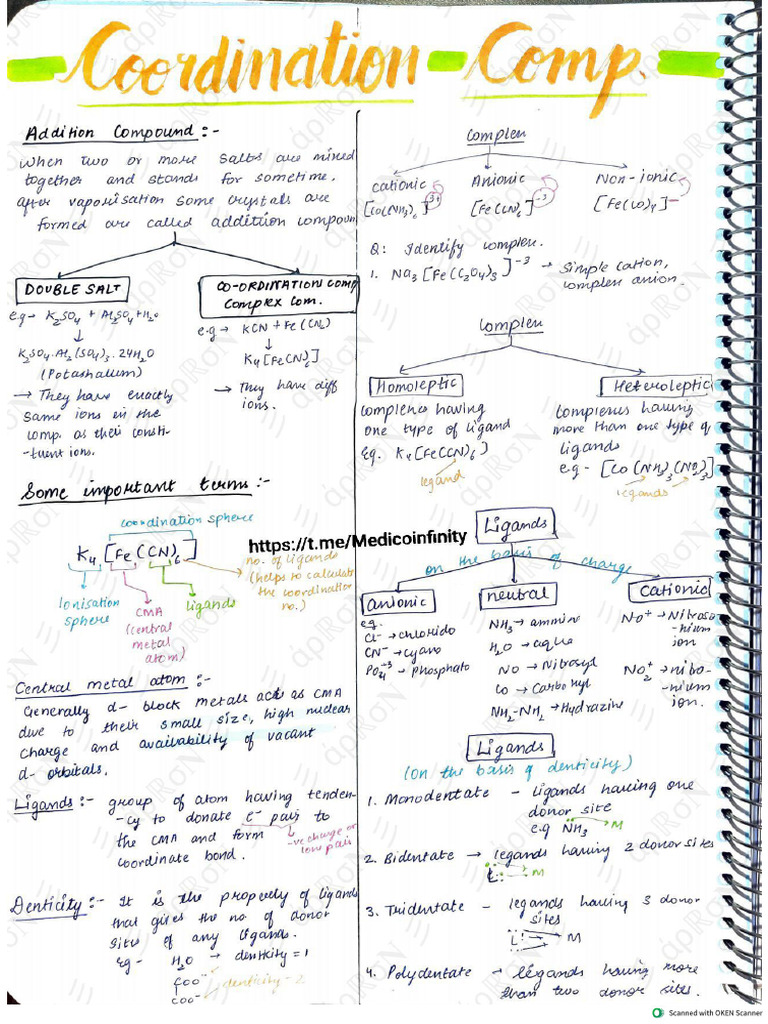 Coordination - Comp.
Addition Compound :-
When two or more salts are mixed
together and stands for sometime.
after vaporisation some crystals are
formed are called addition compoun
DOUBLE SALT
e.g → K2SO4 + Al2SO4+H2O
↓
K2SO4.Al2(SO4)3.24H2O
(Potashallum)
→ They have exactly
same ions in the
comp. as their consti-
-tuent ions.
CO-ORDINATION COMP
Complex Com.
e.g → KCN + Fe(CN2)
↓
K4[FeCN)6]
→ They have diff
ions.
Some important terms :-
coordination sphere
K4[Fe(CN)6]
Ionisation
sphere
CMA
(central
metal
atom)
ligands
no. of ligands
(helps to calculate
the coordination
no.)
https://t.me/Medicoinfinity
Central metal atom :-
Generally d- block metals act as CMA
due to their small size, high nuclear
charge and availability of vacant
d- orbitals.
Ligands :- group of atom having tenden-
-cy to donate e- pair to
the CMA and form
coordinate bond.
-ve charge or
lone pair
Denticity :- It is the property of ligands
that gives the no of donor
sites of any ligands.
Eg - H2O → denticity = 1
COO-
COO-
denticity - 2
Complex
cationic
[CO(NH3)6]3+
Anionic
[Fe(CN)6]-3
Non-ionic
[Fe(CO)4]
Q: Identify complex.
1. Na3[Fe(C2O4)3]-3 → Simple cation,
complex anion.
Complex
Homoleptic
Complexes having
one type of ligand
Eg. K4[Fe(CN)6)
legand
Heteroleptic
Complexes having
more than one type of
ligands
e.g - [Co(NH3)3(NO2)3]
legands
Ligands
on the basis of charge
anionic
e.g.
Cl- → chlorido
CN- → cyano
PO4-3 → phosphato
neutral
NH3 → ammine
H2O → aqua
NO → Nitrosyl
CO → Carbonyl
NH2-NH2 → Hydrazine
Cationic
NO+ → Nitroso
-nium
ion
NO2+ → nitro-
-nium
ion.
Ligands
(on the basis of denticity)
1. Monodentate - ligands having one
donor site
e.g NH3 → M
2. Bidentate → legands having 2 donor sites
L M
3. Tridentate - legands having 3 donor
sites
L M
4. Polydentate → legands having more
than two donor sites.
apiRON
Scanned with OKEN Scanner